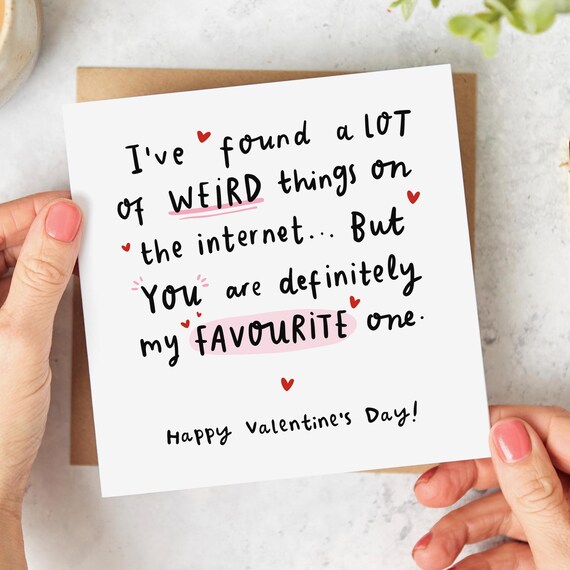 I've found a LOT
of WEiRD things on
the internet... But
You are definitely
my FAVOURiTE one.
Happy Valentine's Day!